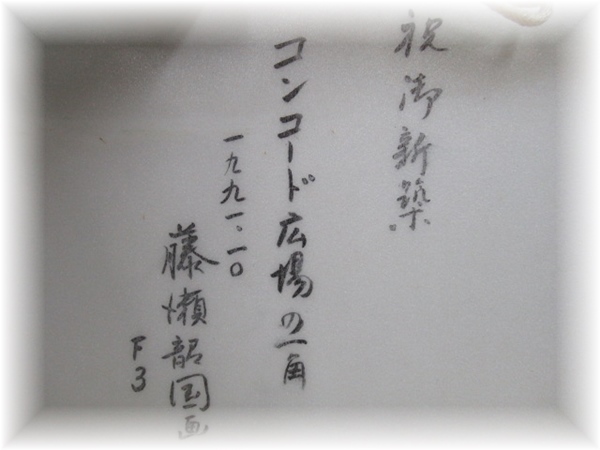 祝御新築
コンコード広場の一角
一九九一.一〇
藤懶韶国画
F3